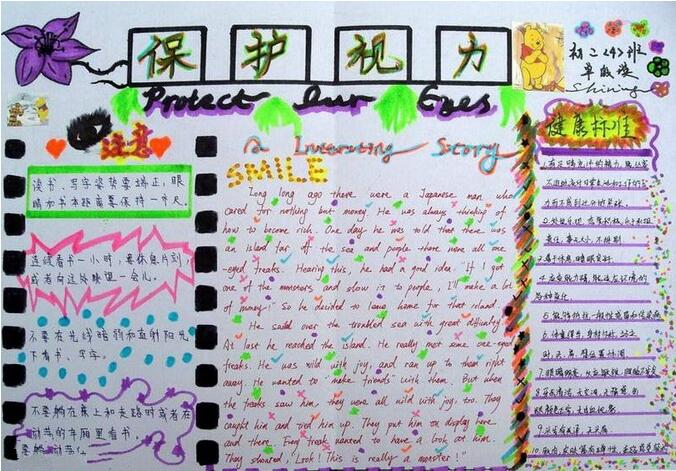 保护视力
Protect Our Eyes
初二(4)班
Shining
注意
读书、写字姿势要端正,眼
睛和书本距离要保持一个尺。
连续看书一小时,要休息片刻,
或者向远处眺望一会儿。
不要在光线暗的和直射阳光
下看书、写字。
不要躺在床上和走路时或者在
动荡的车厢里看书。
A Interesting Story
SMILE
Long long ago there were a Japanese man who
cared for nothing but money. He was always thinking of
how to become rich. One day he was told that there was
an island far off the sea and people there were all one
-eyed freaks. Hearing this, he had a good idea. "If I got
one of the monsters and show it to people, I'll make a lot
of money!" So he decided to leave home for that island.
He sailed over the troubled sea with great difficulty.
At last he reached the island. He really met some one-eyed
freaks. He was wild with joy, and ran up to them right
away. He wanted to make friends with them. But when
the freaks saw him, they were all wild with joy, too. They
caught him and tied him up. They put him on display here
and there. Every freak wanted to have a look at him.
They shouted, "Look! This is really a monster!"
健康标准
1.有足够充沛的精力,
2.处事乐观,态度积极,乐于承担
责任,事无大小,不挑剔
3.善于休息,睡眠良好
4.应变能力强,能适应环境的
各种变化
5.能够抵抗一般性感冒和传染病
6.体重得当,身材匀称,站立
时,头、肩、臂位置协调
7.眼睛明亮,反应敏锐,眼睑不发炎
8.牙齿清洁,无空洞,无痛感,齿
龈颜色正常,无出血现象
9.头发有光泽,无头屑